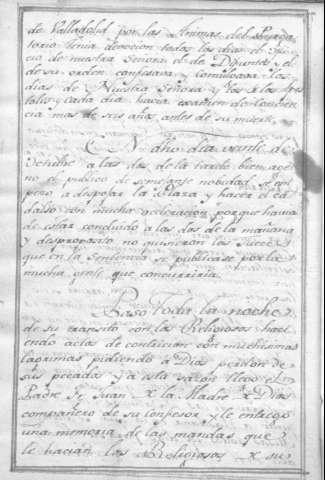 de Valladolid por las Animas del Purga
torio tenia devocion todos los dias el ofi
cio de nuestra Señora el de Difuntos y el
de su orden confesava y comulgava los
dias de Nuestra Señora y
y cada dia hacia examen de concien
cia mas de seis años antes de su muerte.
En dho dia veinte de
Octubre a las dos de la tarde bien age
no el publico de semejante nobedad se em
pezo a despojar la Plaza y hacer el ca
dalso con mucha aceleracion porque havia
de estar concluido a las dos de la mañana
y desproposito no quisieron los Jueces
que en la sentencia se publicase por la
mucha gente que concurriria.
Paso toda la noche
de su transito con los Religiosos haci
endo actos de contricion con muchisimas
lagrimas pidiendo a Dios perdon de
sus pecados y a esta sazon llego el
Padre Fr. Juan de la Madre de Dios
compañero de su confesor y le entrego
una memoria de las mandas que
le hacian los Religiosos de su